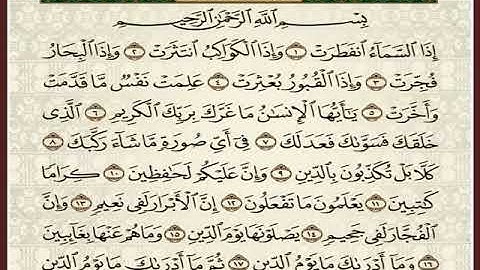 بِسْمِ ٱللَّهِ ٱلرَّحْمَٰنِ ٱلرَّحِيمِ
إِذَا ٱلسَّمَآءُ ٱنفَطَرَتْ ١ وَإِذَا ٱلْكَوَاكِبُ ٱنتَثَرَتْ ٢ وَإِذَا ٱلْبِحَارُ
فُجِّرَتْ ٣ وَإِذَا ٱلْقُبُورُ بُعْثِرَتْ ٤ عَلِمَتْ نَفْسٌ مَّا قَدَّمَتْ
وَأَخَّرَتْ ٥ يَٰٓأَيُّهَا ٱلْإِنسَٰنُ مَا غَرَّكَ بِرَبِّكَ ٱلْكَرِيمِ ٦ ٱلَّذِى
خَلَقَكَ فَسَوَّىٰكَ فَعَدَلَكَ ٧ فِىٓ أَىِّ صُورَةٍ مَّا شَآءَ رَكَّبَكَ ٨
كَلَّا بَلْ تُكَذِّبُونَ بِٱلدِّينِ ٩ وَإِنَّ عَلَيْكُمْ لَحَٰفِظِينَ ١٠ كِرَامًا
كَٰتِبِينَ ١١ يَعْلَمُونَ مَا تَفْعَلُونَ ١٢ إِنَّ ٱلْأَبْرَارَ لَفِى نَعِيمٍ ١٣ وَإِنَّ
ٱلْفُجَّارَ لَفِى جَحِيمٍ ١٤ يَصْلَوْنَهَا يَوْمَ ٱلدِّينِ ١٥ وَمَا هُمْ عَنْهَا بِغَآئِبِينَ
١٦ وَمَآ أَدْرَىٰكَ مَا يَوْمُ ٱلدِّينِ ١٧ ثُمَّ مَآ أَدْرَىٰكَ مَا يَوْمُ ٱلدِّينِ